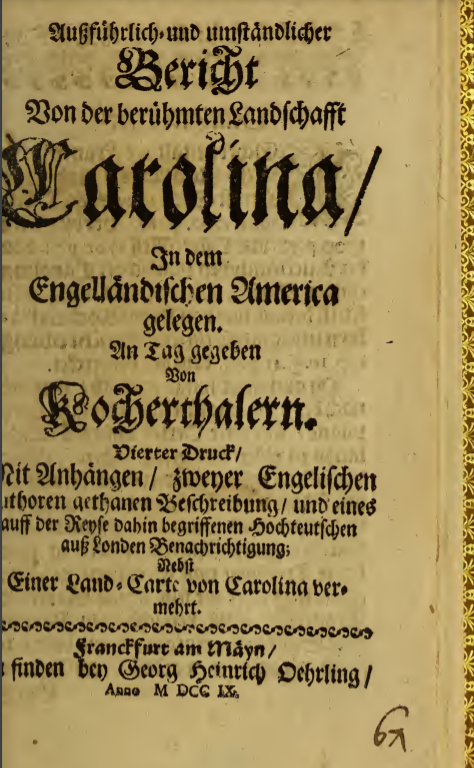 Außführlich-und umständlicher
Bericht
Von der berühmten Landschafft
Carolina/
In dem
Engelländischen America
gelegen.
An Tag gegeben
Von
Kocherthalern.
Vierter Druck/
Mit Anhängen / zweyer Engelischen
uthoren gethanen Beschreibung/ und eines
auff der Reyse dahin begriffenen Hochteutschen
auß Londen Benachrichtigung;
Nebst
Einer Land-Carte von Carolina ver-
mehrt.
Franckfurt am Mäyn/
finden bey Georg Heinrich Oehrling/
Anno M DCC IX.